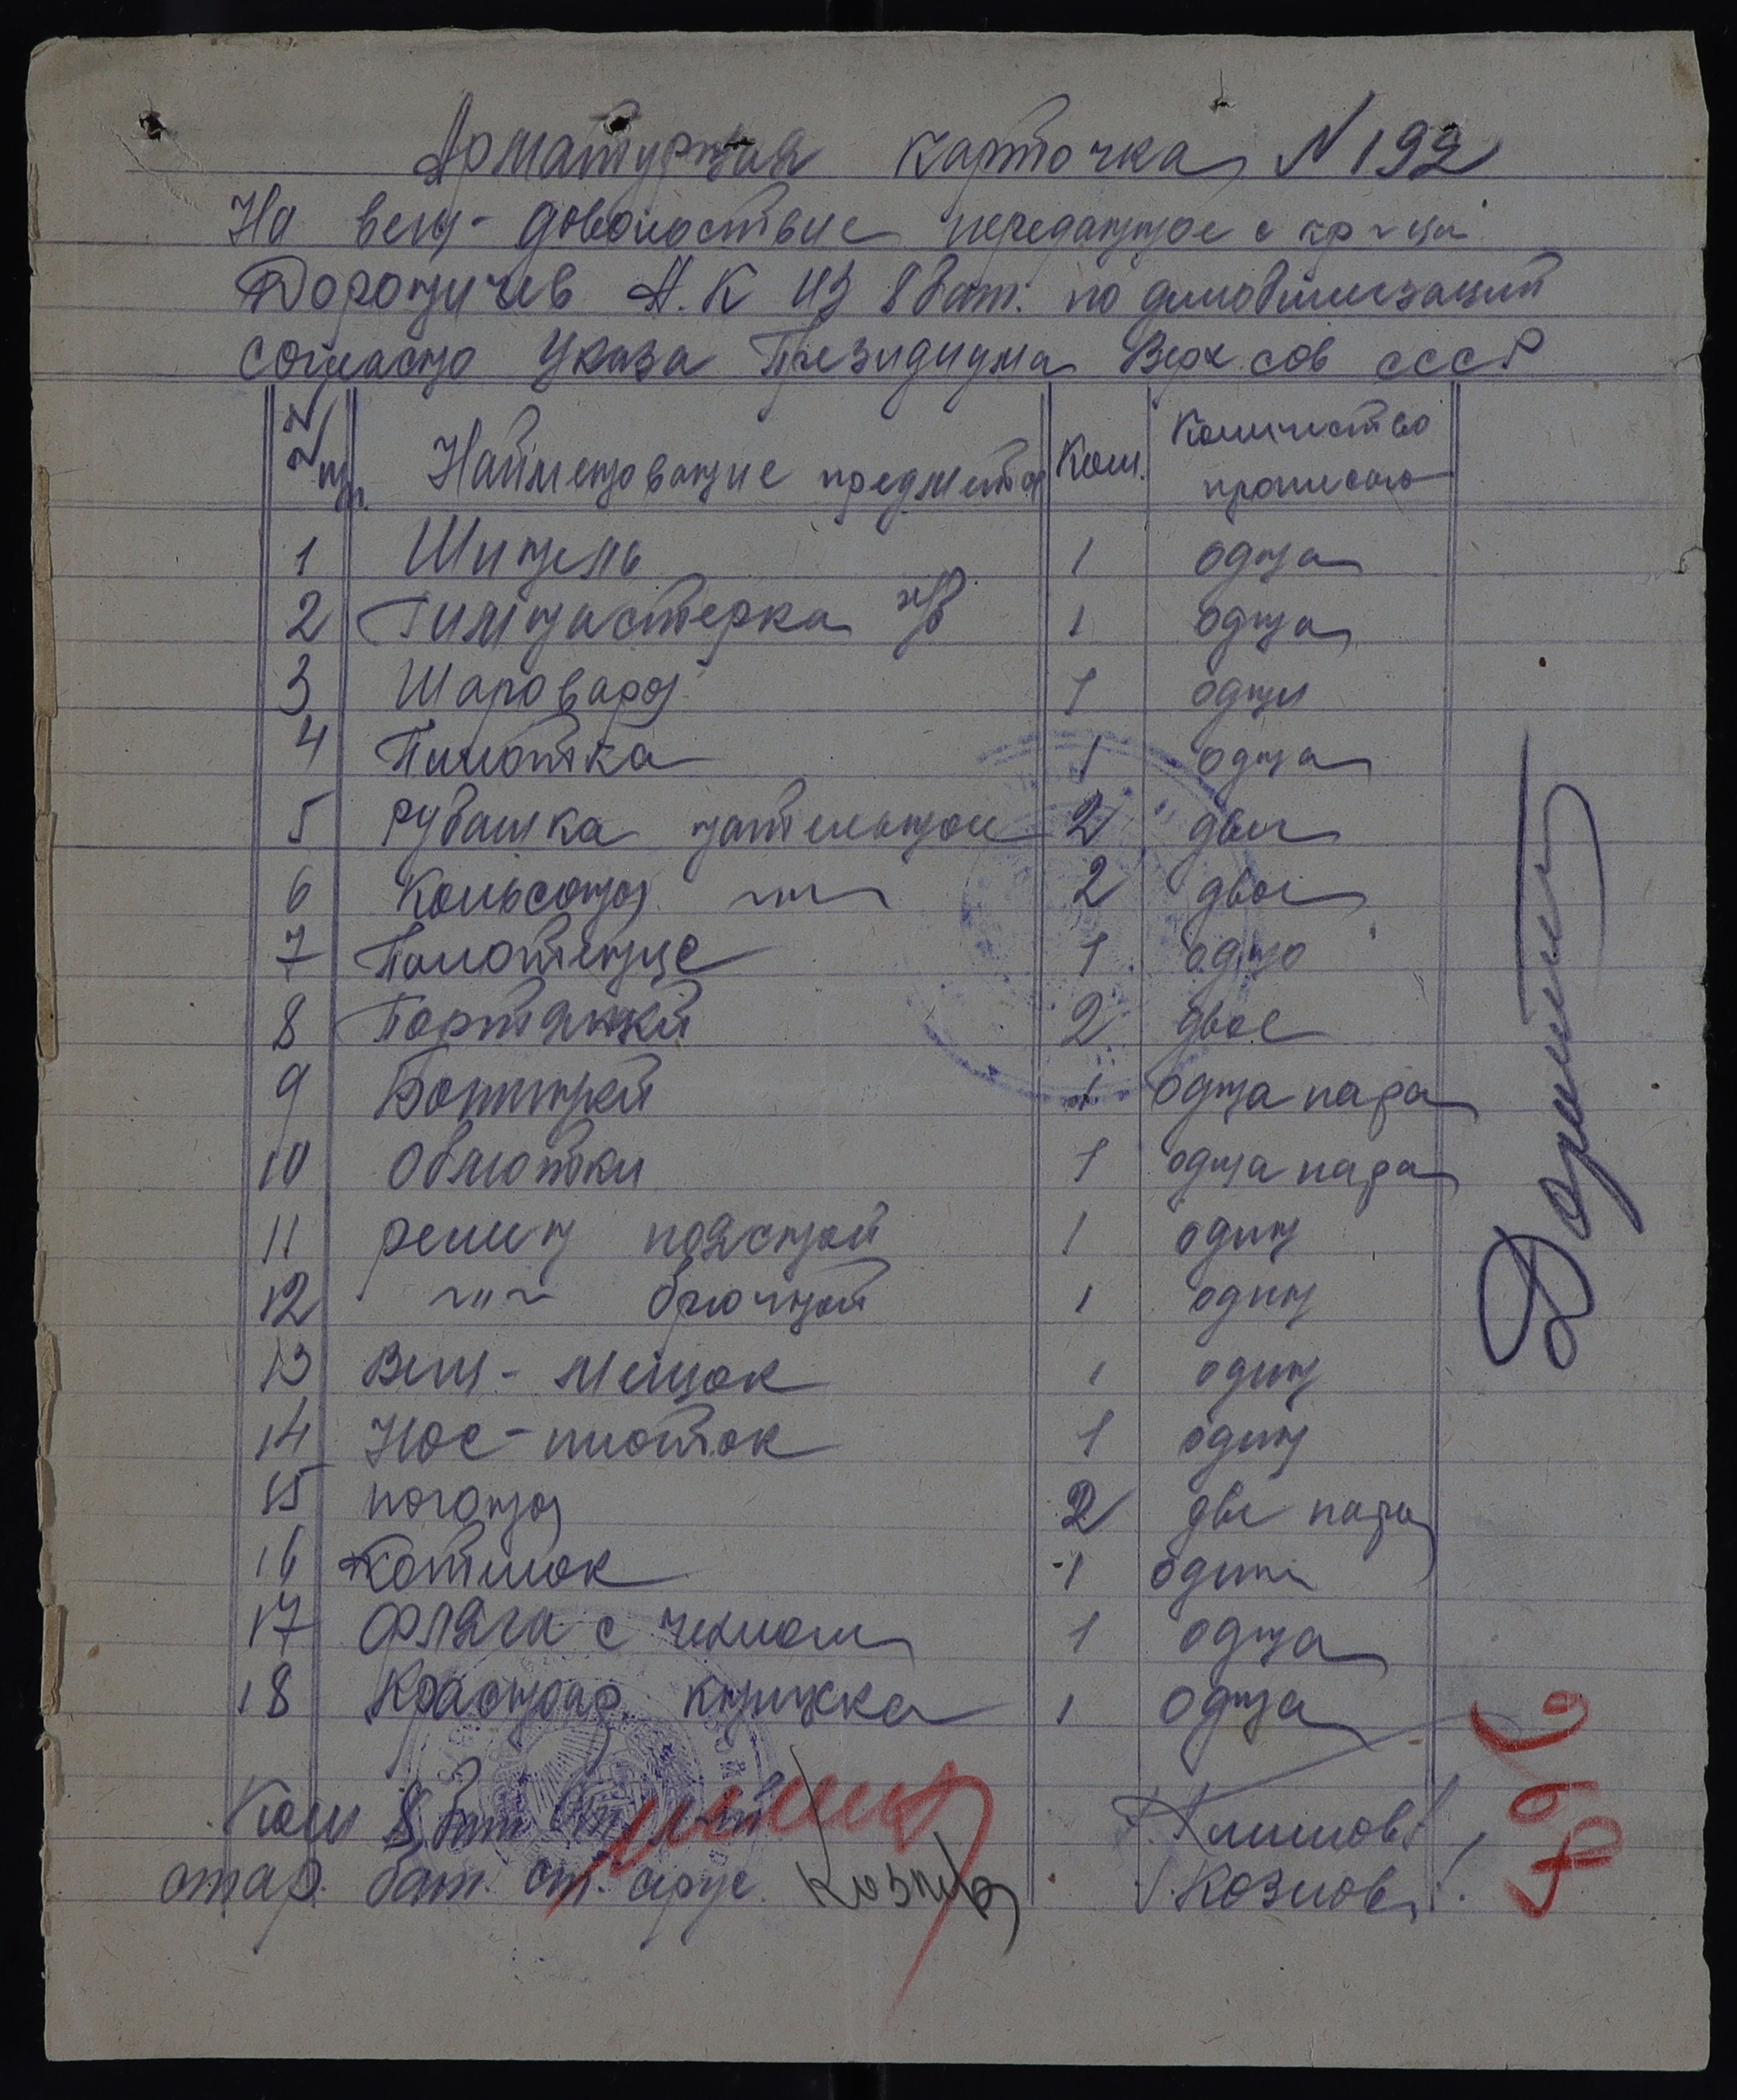 Арматурная карточка N 192
На вещ-довольствие переданное с кр-ца
Дороничев А.К из 8 бат. по демобилизаций
согласно Указа Президиума Верх. сов СССР
N N пп. Наименование предмета Кол. Количество прописью
1 Шинель 1 одна
2 Гимнастерка х/б 1 одна
3 Шаровары 1 одни
4 Пилотка 1 одна
5 Рубашка нательное 2 две
6 Кольсоны -"- 2 двое
7 Полотенце 1 одно
8 Портянкй 2 двое
9 Ботинкй 1 одна пара
10 Обмотки 1 одна пара
11 ремин поясной 1 один
12 -"- брючной 1 один
13 Вещ-мешок 1 один
14 Нос-плоток 1 один
15 погоны 2 две пары
16 Котилок 1 один
17 Фляга с чехлом 1 одна
18 Красноар. книжка 1 одна
Ком 8 бат
Климов
стар. бат. ст. серж. Козлов /Козлов/.